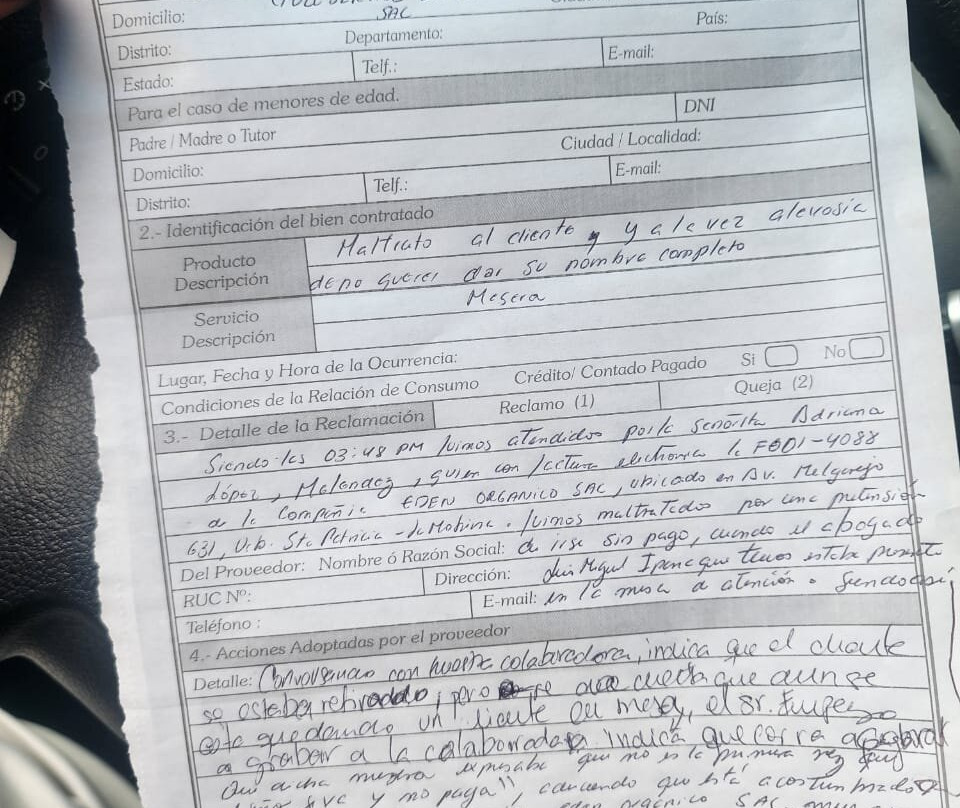 Domicilio:
SAC
Distrito: Departamento: País:
Estado: Telf.: E-mail:
Para el caso de menores de edad.
Padre / Madre o Tutor DNI
Domicilio: Ciudad / Localidad:
Distrito: Telf.: E-mail:
2.- Identificación del bien contratado
Producto Descripción
Maltrato al cliente y a la vez alevosia
de no querer dar su nombre completo
Servicio Descripción
Mesera
Lugar, Fecha y Hora de la Ocurrencia:
Condiciones de la Relación de Consumo Crédito/ Contado Pagado Si No
3.- Detalle de la Reclamación Reclamo (1) Queja (2)
Siendo las 03:48 PM fuimos atendidos por la señorita Adriana
López, , quien con factura electronica la F001-4088
de la compañia EDEN ORGANICO SAC, ubicado en Av. Melgarejo
631, Urb. Sta Patricia - La Molina. fuimos maltratados por una
Del Proveedor: Nombre ó Razón Social: de irse sin pago, cuando el abogado
RUC Nº: Dirección: Luis Miguel que estaba presente
Teléfono : E-mail: en la mesa de atención. Siendo
4.- Acciones Adoptadas por el proveedor
Detalle: con nuestra colaboradora, indica que el cliente
se estaba retirando, pero se cuenta que aun se
esta quedando un cliente en mesa, el sr. Empezo
a grabar a la colaboradora indica que
que no es la primera vez
y no paga", que está acostumbrado
SAC